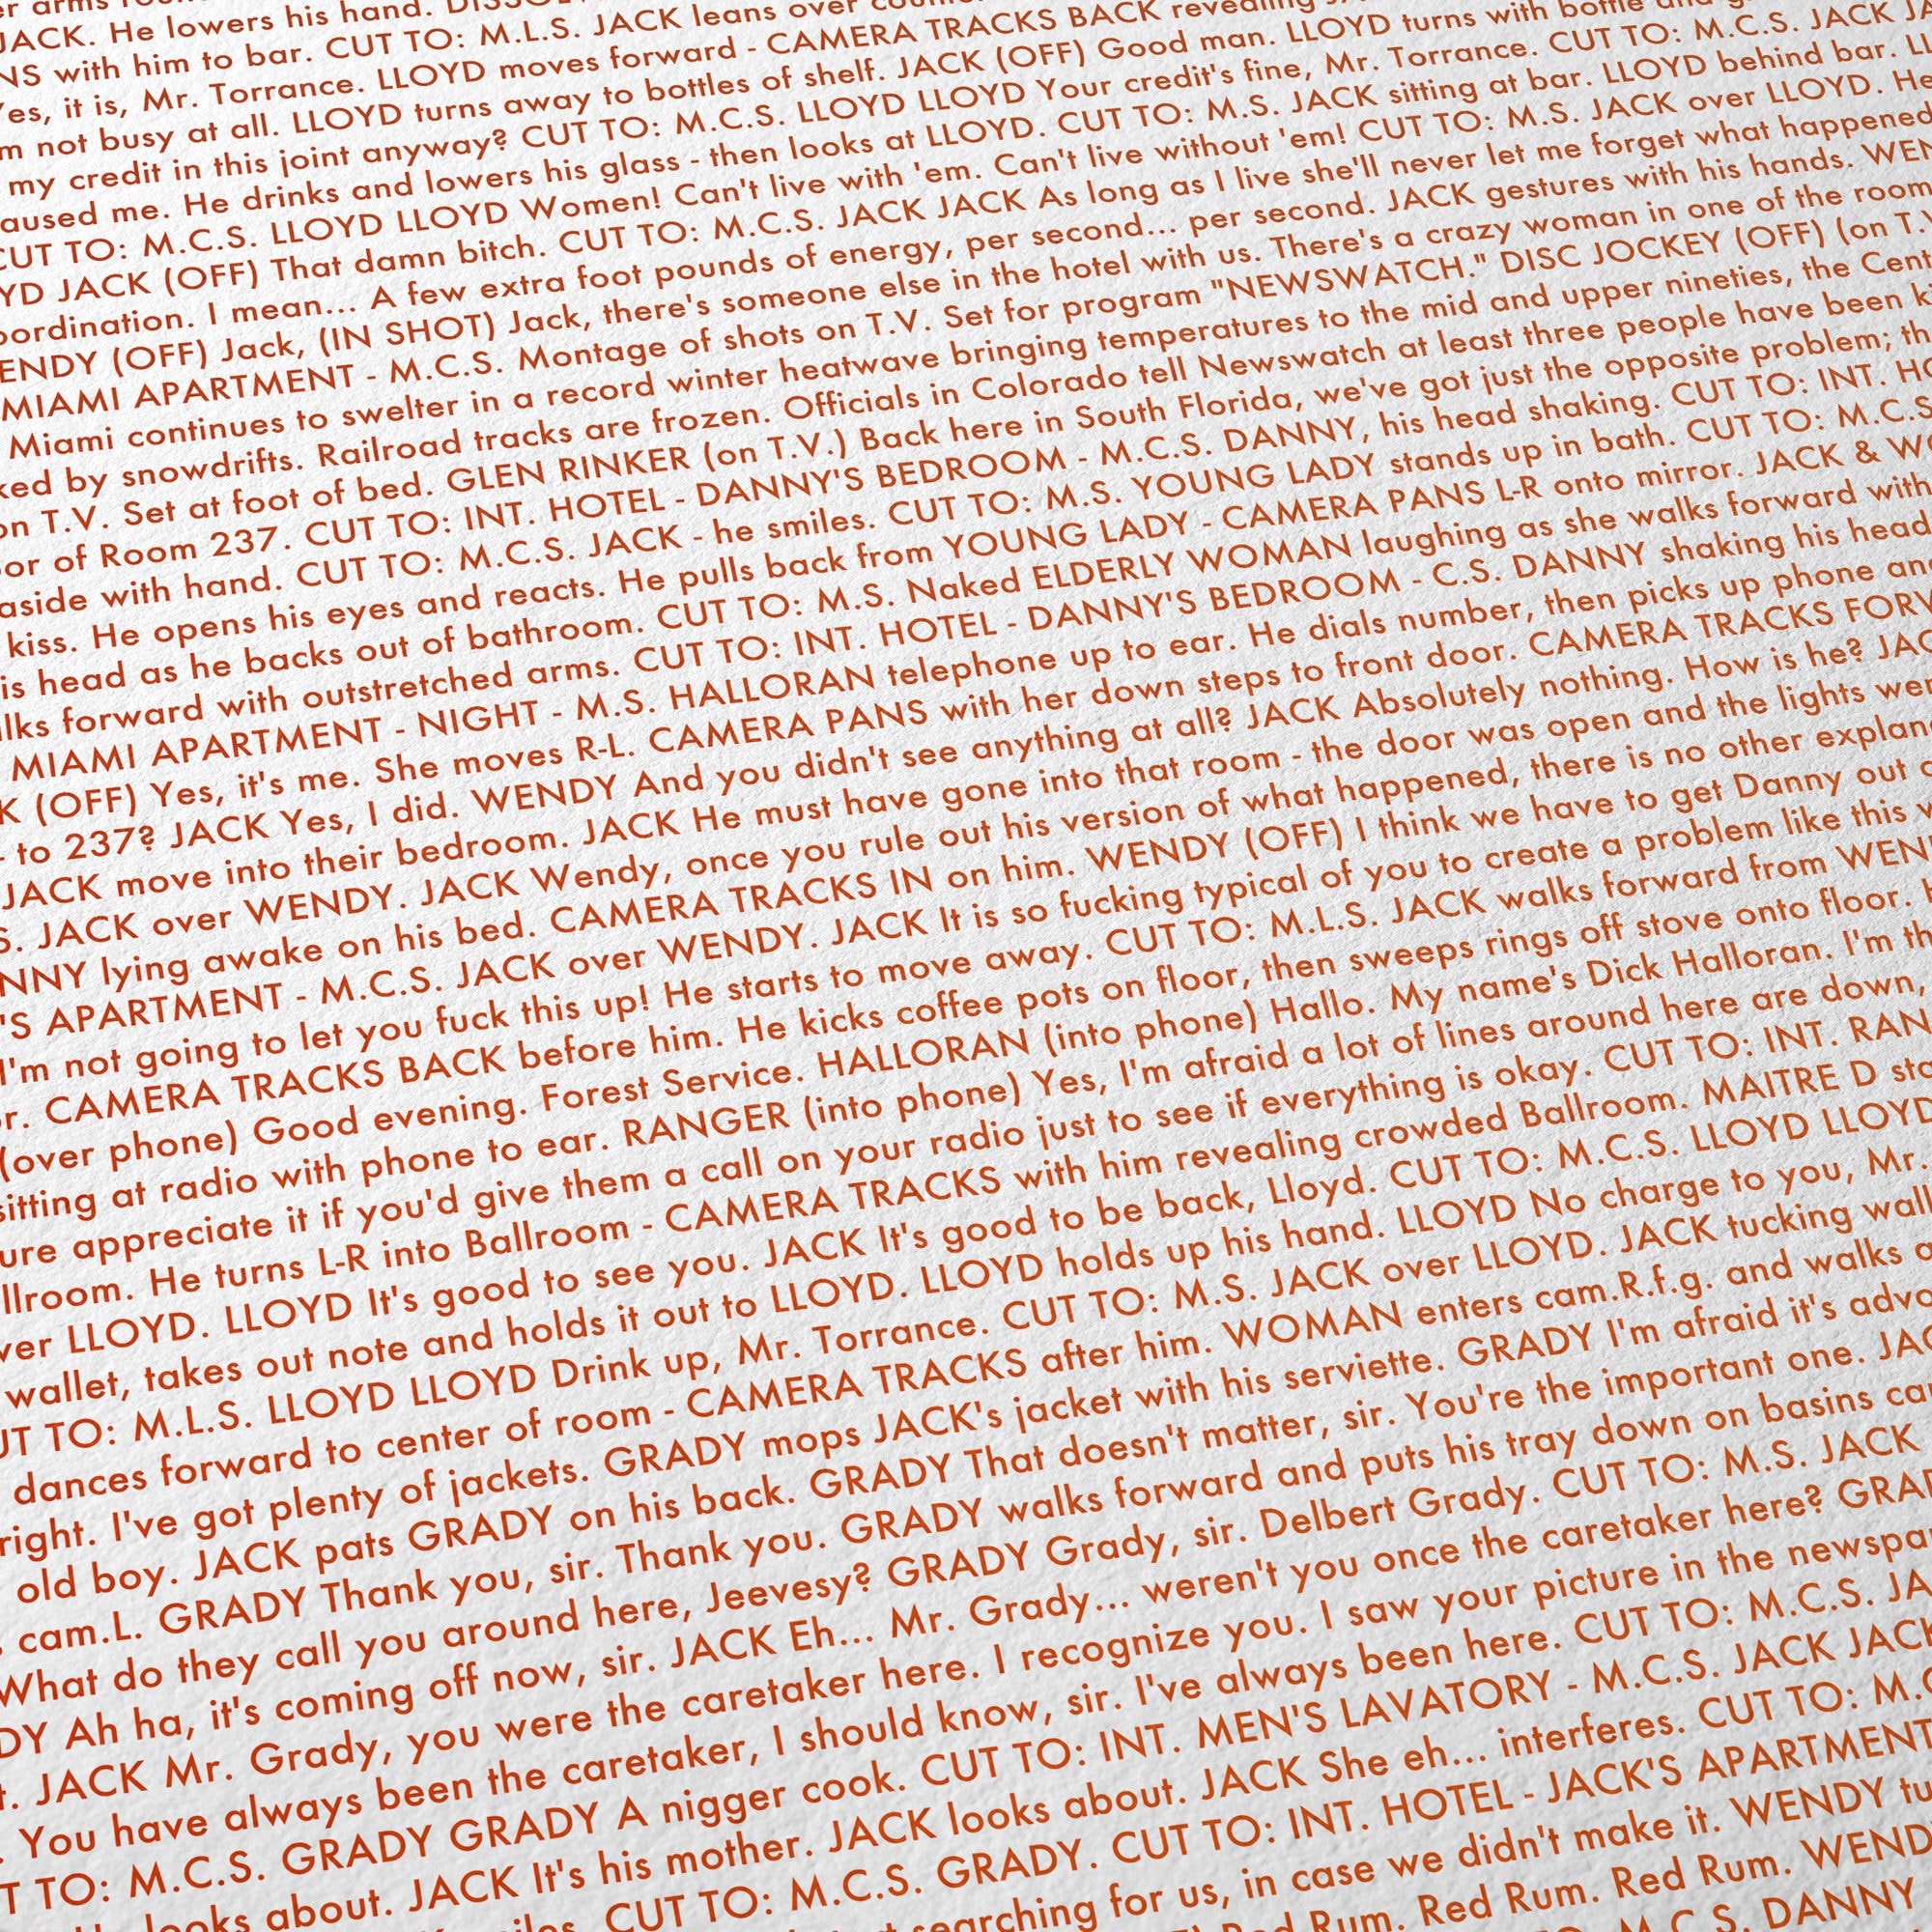 JACK. He lowers his hand.
NS with him to bar. CUT TO: M.L.S. JACK leans over
Yes, it is, Mr. Torrance. LLOYD moves forward - CAMERA TRACKS BACK revealing
m not busy at all. LLOYD turns away to bottles of shelf. JACK (OFF) Good man. LLOYD turns with bottle
my credit in this joint anyway? CUT TO: M.C.S. LLOYD LLOYD Your credit's fine, Mr. Torrance. CUT TO: M.C.S. JACK JA
aused me. He drinks and lowers his glass - then looks at LLOYD. CUT TO: M.S. JACK sitting at bar. LLOYD behind bar. LL
CUT TO: M.C.S. LLOYD LLOYD Women! Can't live with 'em. Can't live without 'em! CUT TO: M.S. JACK over LLOYD. He
YD JACK (OFF) That damn bitch. CUT TO: M.C.S. JACK JACK As long as I live she'll never let me forget what happened
oordination. I mean... A few extra foot pounds of energy, per second... per second. JACK gestures with his hands. WEN
ENDY (OFF) Jack, (IN SHOT) Jack, there's someone else in the hotel with us. There's a crazy woman in one of the room
MIAMI APARTMENT - M.C.S. Montage of shots on T.V. Set for program "NEWSWATCH." DISC JOCKEY (OFF) (on T.
Miami continues to swelter in a record winter heatwave bringing temperatures to the mid and upper nineties, the Cent
ked by snowdrifts. Railroad tracks are frozen. Officials in Colorado tell Newswatch at least three people have been k
on T.V. Set at foot of bed. GLEN RINKER (on T.V.) Back here in South Florida, we've got just the opposite problem; th
or of Room 237. CUT TO: INT. HOTEL - DANNY'S BEDROOM - M.C.S. DANNY, his head shaking. CUT TO: INT. HO
aside with hand. CUT TO: M.C.S. JACK - he smiles. CUT TO: M.S. YOUNG LADY stands up in bath. CUT TO: M.C.S
kiss. He opens his eyes and reacts. He pulls back from YOUNG LADY - CAMERA PANS L-R onto mirror. JACK & W
is head as he backs out of bathroom. CUT TO: M.S. Naked ELDERLY WOMAN laughing as she walks forward with
lks forward with outstretched arms. CUT TO: INT. HOTEL - DANNY'S BEDROOM - C.S. DANNY shaking his head
MIAMI APARTMENT - NIGHT - M.S. HALLORAN telephone up to ear. He dials number, then picks up phone an
K (OFF) Yes, it's me. She moves R-L. CAMERA PANS with her down steps to front door. CAMERA TRACKS FORW
- to 237? JACK Yes, I did. WENDY And you didn't see anything at all? JACK Absolutely nothing. How is he? JAC
JACK move into their bedroom. JACK He must have gone into that room - the door was open and the lights wer
S. JACK over WENDY. JACK Wendy, once you rule out his version of what happened, there is no other explan
NNY lying awake on his bed. CAMERA TRACKS IN on him. WENDY (OFF) I think we have to get Danny out o
'S APARTMENT - M.C.S. JACK over WENDY. JACK It is so fucking typical of you to create a problem like this
I'm not going to let you fuck this up! He starts to move away. CUT TO: M.L.S. JACK walks forward from WEN
r. CAMERA TRACKS BACK before him. He kicks coffee pots on floor, then sweeps rings off stove onto floor.
(over phone) Good evening. Forest Service. HALLORAN (into phone) Hallo. My name's Dick Halloran. I'm th
sitting at radio with phone to ear. RANGER (into phone) Yes, I'm afraid a lot of lines around here are down,
ure appreciate it if you'd give them a call on your radio just to see if everything is okay. CUT TO: INT. RAN
llroom. He turns L-R into Ballroom - CAMERA TRACKS with him revealing crowded Ballroom. MAITRE D sta
ver LLOYD. LLOYD It's good to see you. JACK It's good to be back, Lloyd. CUT TO: M.C.S. LLOYD LLOYD
wallet, takes out note and holds it out to LLOYD. LLOYD holds up his hand. LLOYD No charge to you, Mr.
UT TO: M.L.S. LLOYD LLOYD Drink up, Mr. Torrance. CUT TO: M.S. JACK over LLOYD. JACK tucking wall
dances forward to center of room - CAMERA TRACKS after him. WOMAN enters cam.R.f.g. and walks a
right. I've got plenty of jackets. GRADY mops JACK's jacket with his serviette. GRADY I'm afraid it's advo
old boy. JACK pats GRADY on his back. GRADY That doesn't matter, sir. You're the important one. JAC
. cam.L. GRADY Thank you, sir. Thank you. GRADY walks forward and puts his tray down on basins ca
What do they call you around here, Jeevesy? GRADY Grady, sir. Delbert Grady. CUT TO: M.S. JACK
DY Ah ha, it's coming off now, sir. JACK Eh... Mr. Grady... weren't you once the caretaker here? GRAD
t. JACK Mr. Grady, you were the caretaker here. I recognize you. I saw your picture in the newspa
. You have always been the caretaker, I should know, sir. I've always been here. CUT TO: M.C.S. JA
T TO: M.C.S. GRADY GRADY A nigger cook. CUT TO: INT. MEN'S LAVATORY - M.C.S. JACK JACK
looks about. JACK It's his mother. JACK looks about. JACK She eh... interferes. CUT TO: M.C
CUT TO: M.C.S. GRADY. CUT TO: INT. HOTEL - JACK'S APARTMENT
searching for us, in case we didn't make it. WENDY tu
Red Rum. Red Rum. WEND
M.C.S. DANNY